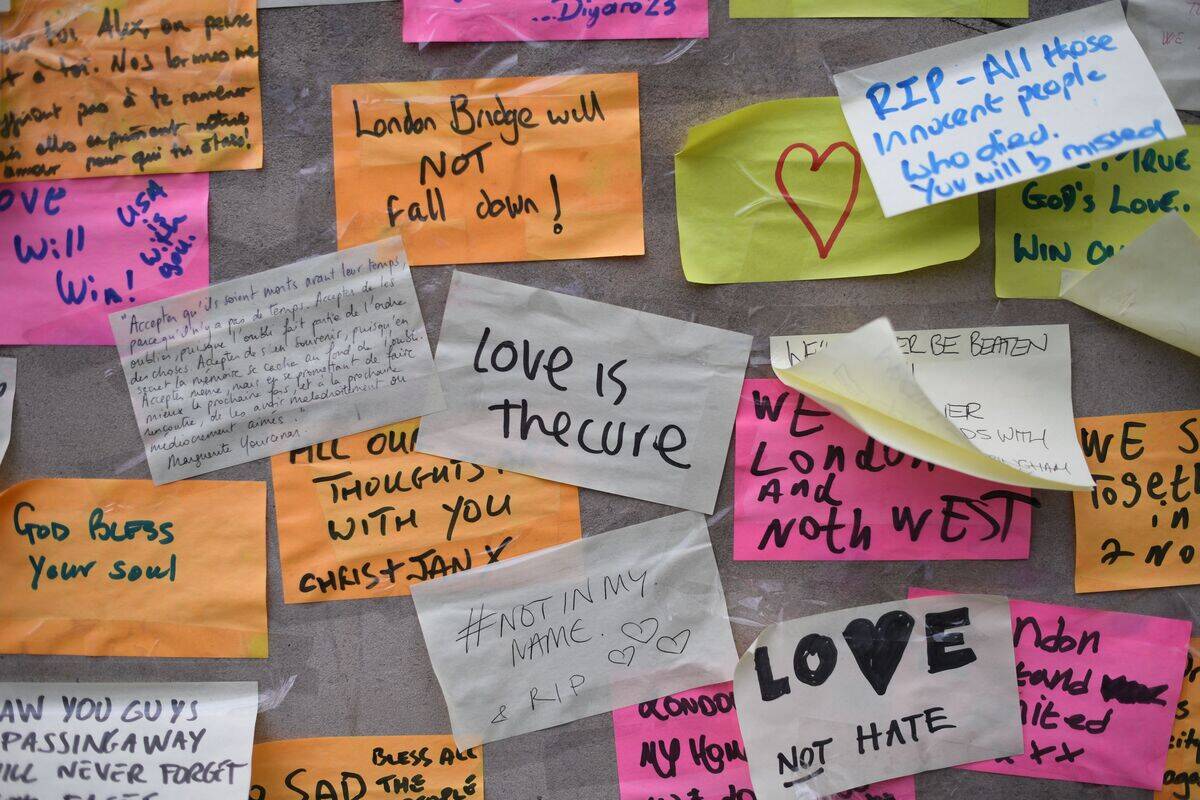 ...Diyaro23
toi, Alex, on pense
à toi. Nos larmes ne
pas à te ramener
elles expriment notre
amour pour qui tu étais!
London Bridge will
NOT
fall down!
RIP - All those
innocent people
who died.
You will b missed
TRUE
God's Love.
WIN
Love
Will
Win!
USA
is
with
you.
"Accepter qu'ils soient morts avant leur temps,
parce qu'il n'y a pas de temps. Accepter de les
oublier, puisque l'oubli fait partie de l'ordre
des choses. Accepter de s'en souvenir, puisqu'en
secret la mémoire se cache au fond de l'oubli.
Accepter même, mais en se promettant de faire
mieux la prochaine fois, et à la prochaine
rencontre, de les avoir maladroitement ou
médiocrement aimés."
Marguerite Yourcenar
Love is
The cure
BE BEATEN
WITH
WE
London
And
Noth WEST
WE
Togeth
in
2
GOD BLESS
Your soul
ALL OUR
THOUGHTS
WITH YOU
CHRIS + JAN X
#NOT IN MY
NAME.
& RIP
LOVE
NOT HATE
xx
LONDON
MY HOM
YOU GUYS
PASSING AWAY
NEVER FORGET
BLESS ALL
SAD THE
PEOPLE